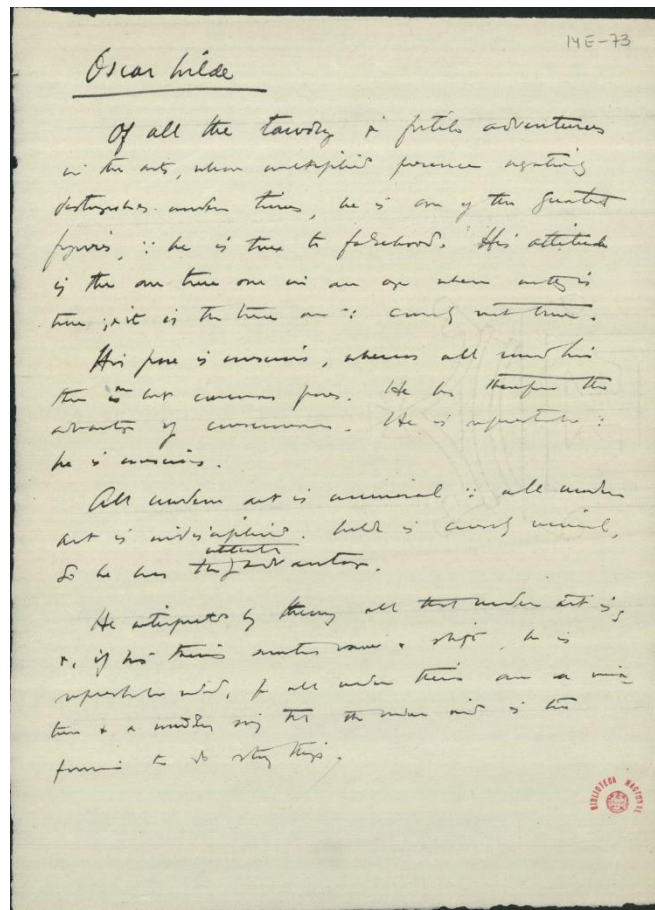 14E-73
Oscar Wilde
Of all the tawdry & futile adventures
in the arts, whose multiplied presence negatively
distinguishes modern times, he is one of the greatest
figures, ∵ he is true to falsehood. His attitude
is the one true one in an age when nothing is
true; & it is the true one ∵ consciously not true.
His pose is conscious, whereas all round him
there are but unconscious poses. He has therefore the
advantage of consciousness. He is representative:
he is conscious.
All modern art is immoral ∵ all modern
art is indisciplined. Wilde is consciously immoral,
so he has the intellectual advantage.
He interprets by theory all that modern art is,
&, if his theories sometimes waver & shift, he is
representative indeed, for all modern theories are a mix-
ture & a medley, seeing that the modern mind is too
to do strong things.
BIBLIOTECA NACIONAL